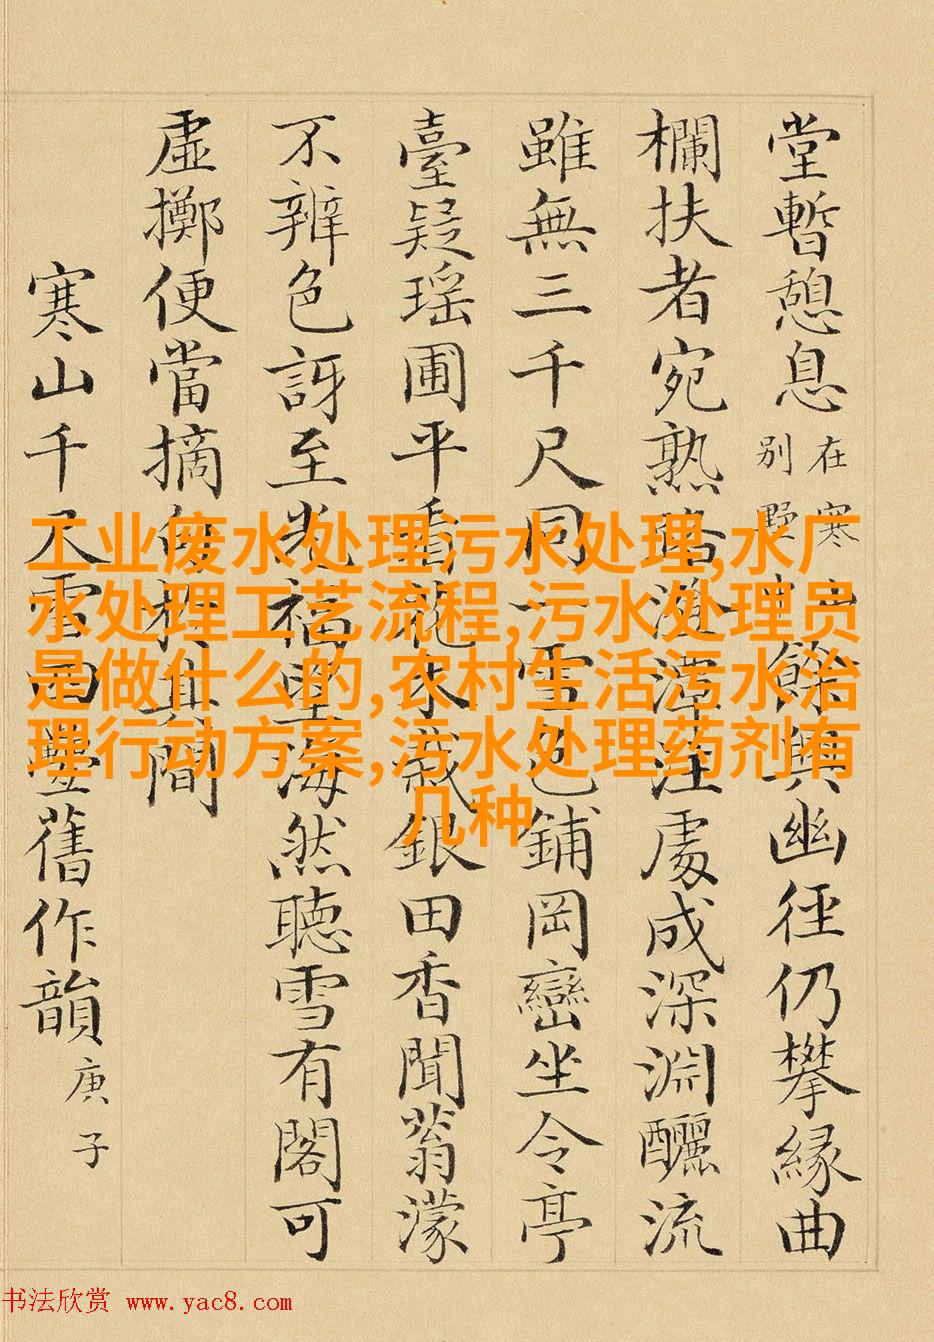 堂暫憩息
在寒
別
餘興幽徑仍攀緣曲
欄扶者宛熟路潭洼處成深淵釃流
雖無三千尺同一雪色鋪岡巒坐令亭
臺疑瑶圃平看花木栽銀田香聞蓊濛
不辨色訝至光福里海然聽雪有閣可
虛擲便當摘句其間
寒山千尺雪疊舊作韻
庚子
工业废水处理污水处理,水厂
水处理工艺流程,污水处理员
是做什么的,农村生活污水治
理行动方案,污水处理药剂有
几种
书法欣赏 www.yac8.com